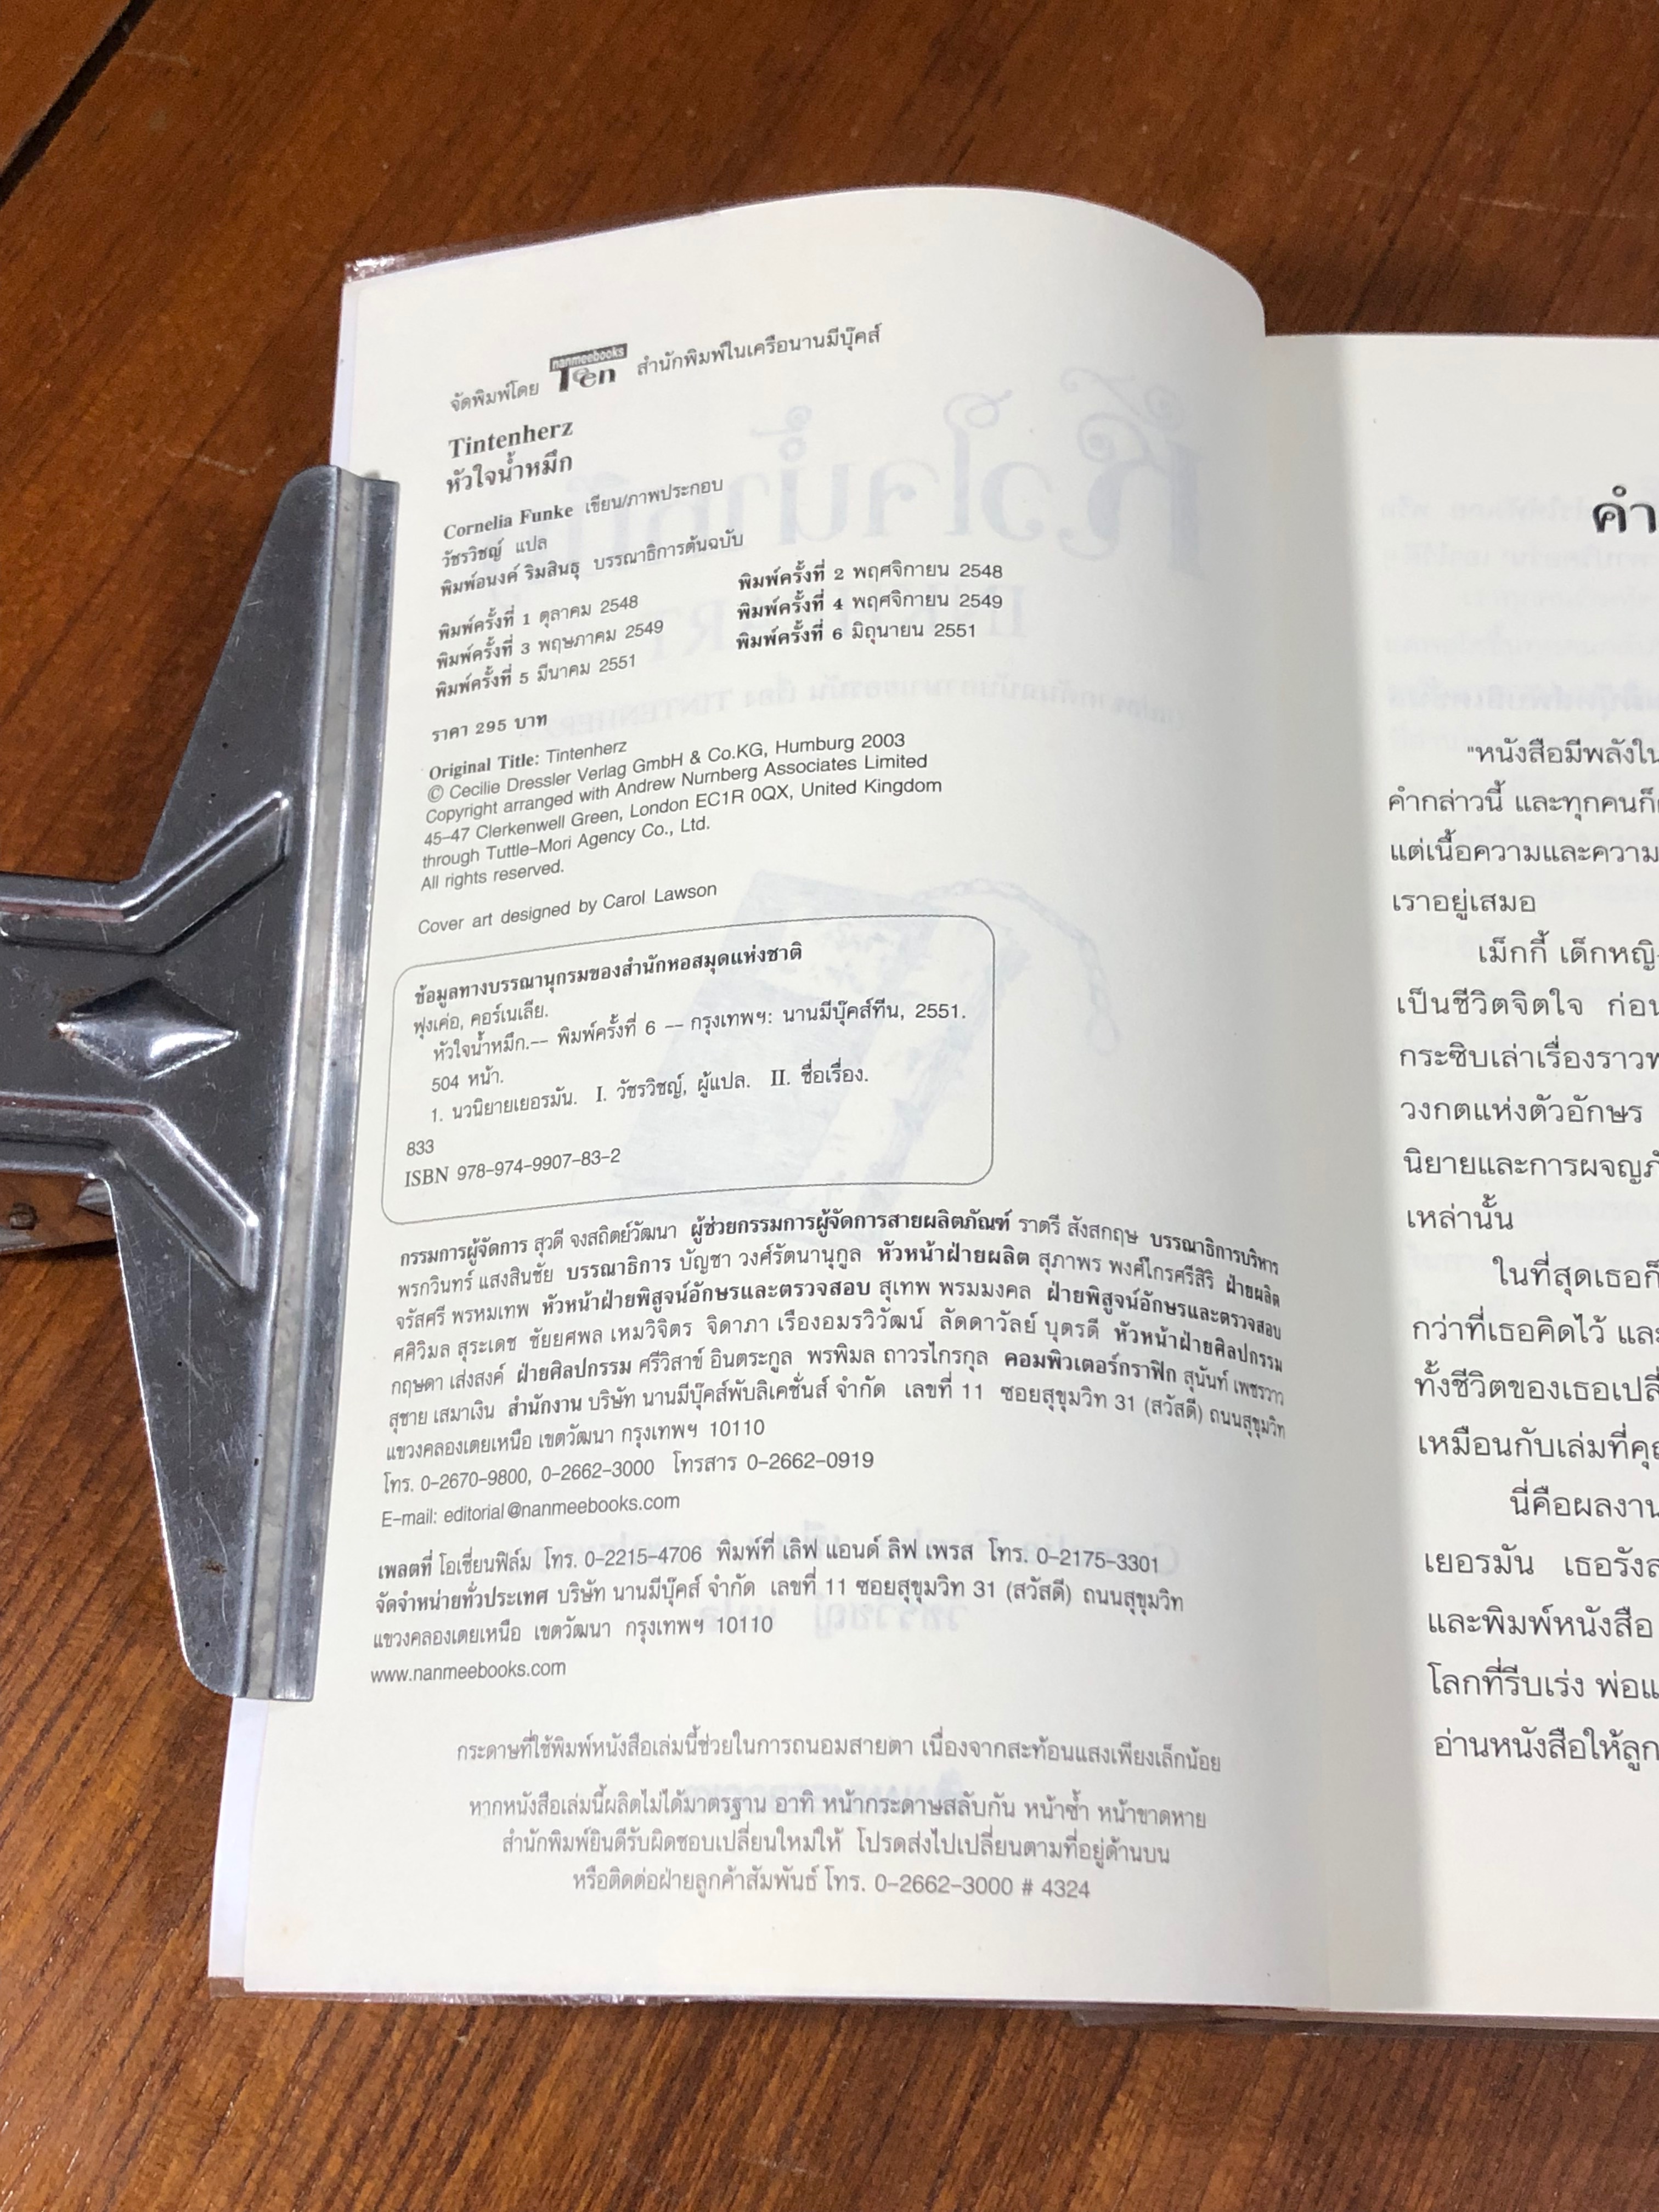 จัดพิมพ์โดย nanmeebooks Teen สำนักพิมพ์ในเครือนานมีบุ๊คส์
Tintenherz
หัวใจน้ำหมึก
Cornelia Funke เขียน/ภาพประกอบ
วัชรวิชญ์ แปล
พิมพ์อนงค์ ริมสินธุ บรรณาธิการต้นฉบับ
พิมพ์ครั้งที่ 1 ตุลาคม 2548 พิมพ์ครั้งที่ 2 พฤศจิกายน 2548
พิมพ์ครั้งที่ 3 พฤษภาคม 2549 พิมพ์ครั้งที่ 4 พฤศจิกายน 2549
พิมพ์ครั้งที่ 5 มีนาคม 2551 พิมพ์ครั้งที่ 6 มิถุนายน 2551
ราคา 295 บาท
Original Title: Tintenherz
© Cecilie Dressler Verlag GmbH & Co.KG, Humburg 2003
Copyright arranged with Andrew Nurnberg Associates Limited
45-47 Clerkenwell Green, London EC1R 0QX, United Kingdom
through Tuttle-Mori Agency Co., Ltd.
All rights reserved.
Cover art designed by Carol Lawson
ข้อมูลทางบรรณานุกรมของสำนักหอสมุดแห่งชาติ
ฟุงเค่อ, คอร์เนเลีย.
หัวใจน้ำหมึก.-- พิมพ์ครั้งที่ 6 -- กรุงเทพฯ: นานมีบุ๊คส์ทีน, 2551.
504 หน้า.
1. นวนิยายเยอรมัน. I. วัชรวิชญ์, ผู้แปล. II. ชื่อเรื่อง.
833
ISBN 978-974-9907-83-2
กรรมการผู้จัดการ สุวดี จงสถิตย์วัฒนา ผู้ช่วยกรรมการผู้จัดการสายผลิตภัณฑ์ ราตรี สังสกฤษ บรรณาธิการบริหาร
พรกวินทร์ แสงสินชัย บรรณาธิการ บัญชา วงศ์รัตนานุกูล หัวหน้าฝ่ายผลิต สุภาพร พงศ์ไกรศรีสิริ ฝ่ายผลิต
จรัสศรี พรหมเทพ หัวหน้าฝ่ายพิสูจน์อักษรและตรวจสอบ สุเทพ พรมมงคล ฝ่ายพิสูจน์อักษรและตรวจสอบ
ศศิวิมล สุระเดช ชัยยศพล เหมวิจิตร จิดาภา เรืองอมรวิวัฒน์ ลัดดาวัลย์ บุตรดี หัวหน้าฝ่ายศิลปกรรม
กฤษดา เส่งสงค์ ฝ่ายศิลปกรรม ศรีวิสาข์ อินตระกูล พรพิมล ถาวรไกรกุล คอมพิวเตอร์กราฟิก สุนันท์ เพชรวาว
สุชาย เสมาเงิน สำนักงาน บริษัท นานมีบุ๊คส์พับลิเคชั่นส์ จำกัด เลขที่ 11 ซอยสุขุมวิท 31 (สวัสดี) ถนนสุขุมวิท
แขวงคลองเตยเหนือ เขตวัฒนา กรุงเทพฯ 10110
โทร. 0-2670-9800, 0-2662-3000 โทรสาร 0-2662-0919
E-mail: editorial@nanmeebooks.com
เพลตที่ โอเชี่ยนฟิล์ม โทร. 0-2215-4706 พิมพ์ที่ เลิฟ แอนด์ ลิฟ เพรส โทร. 0-2175-3301
จัดจำหน่ายทั่วประเทศ บริษัท นานมีบุ๊คส์ จำกัด เลขที่ 11 ซอยสุขุมวิท 31 (สวัสดี) ถนนสุขุมวิท
แขวงคลองเตยเหนือ เขตวัฒนา กรุงเทพฯ 10110
www.nanmeebooks.com
กระดาษที่ใช้พิมพ์หนังสือเล่มนี้ช่วยในการถนอมสายตา เนื่องจากสะท้อนแสงเพียงเล็กน้อย
หากหนังสือเล่มนี้ผลิตไม่ได้มาตรฐาน อาทิ หน้ากระดาษสลับกัน หน้าซ้ำ หน้าขาดหาย
สำนักพิมพ์ยินดีรับผิดชอบเปลี่ยนใหม่ให้ โปรดส่งไปเปลี่ยนตามที่อยู่ด้านบน
หรือติดต่อฝ่ายลูกค้าสัมพันธ์ โทร. 0-2662-3000 # 4324
คำ
"หนังสือมีพลังใน
คำกล่าวนี้ และทุกคนก็
แต่เนื้อความและความ
เราอยู่เสมอ
เม็กกี้ เด็กหญิง
เป็นชีวิตจิตใจ ก่อน
กระซิบเล่าเรื่องราว
วงกตแห่งตัวอักษร
นิยายและการผจญภั
เหล่านั้น
ในที่สุดเธอก็
กว่าที่เธอคิดไว้ และ
ทั้งชีวิตของเธอเปลี่
เหมือนกับเล่มที่คุณ
นี่คือผลงาน
เยอรมัน เธอรังส
และพิมพ์หนังสือ
โลกที่รีบเร่ง พ่อแ
อ่านหนังสือให้ลูก